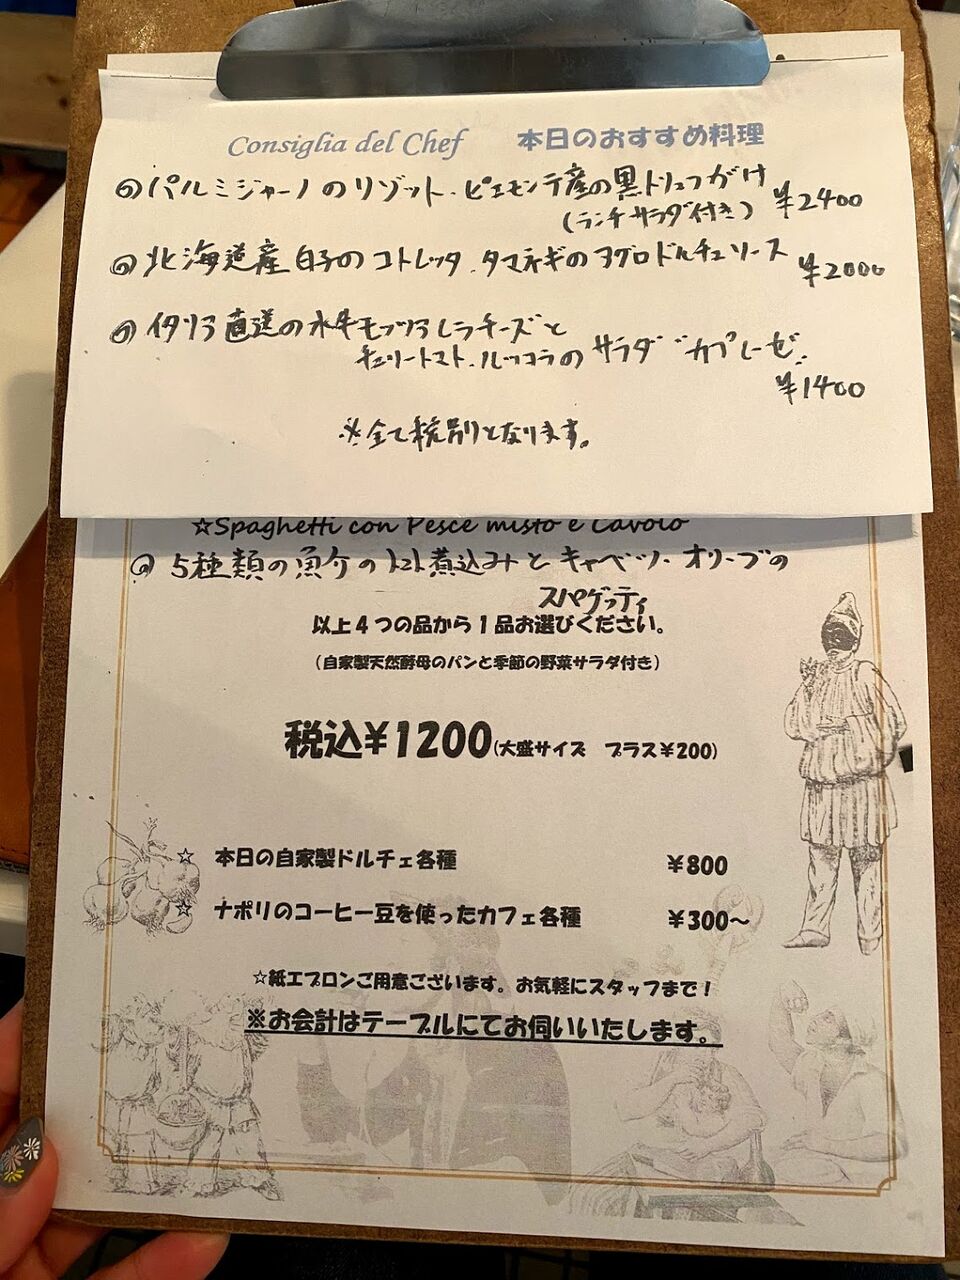 Consiglia del Chef 本日のおすすめ料理
パルミジャーノのリゾット、ピエモンテ産の黒トリュフがけ
(ランチサラダ付き) ¥2400
北海道産白子のコトレッタ、タマネギのアグロドルチェソース ¥2000
イタリア直送の水牛モッツアレラチーズと
チェリートマト、ルッコラのサラダ"カプレーゼ"
¥1400
※全て税別となります。
☆Spaghetti con Pesce misto e Cavolo
5種類の魚介のトマト煮込みとキャベツ、オリーブの
スパゲッティ
以上4つの品から1品お選びください。
(自家製天然酵母のパンと季節の野菜サラダ付き)
税込¥1200(大盛サイズ プラス¥200)
☆ 本日の自家製ドルチェ各種 ¥800
☆ ナポリのコーヒー豆を使ったカフェ各種 ¥300～
☆紙エプロンご用意ございます。お気軽にスタッフまで！
※お会計はテーブルにてお伺いいたします。